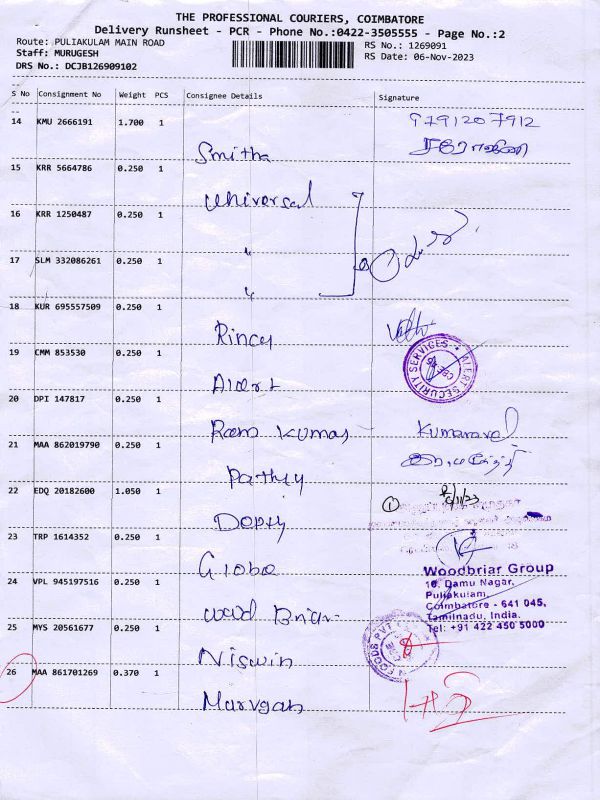 THE PROFESSIONAL COURIERS, COIMBATORE
Delivery Runsheet - PCR - Phone No.:0422-3505555 - Page No.:2
Route: PULIAKULAM MAIN ROAD
RS No.: 1269091
Staff: MURUGESH
RS Date: 06-Nov-2023
DRS No.: DCJB126909102
S No Consignment No Weight PCS Consignee Details Signature
14 KMU 2666191 1.700 1 9791207912
Smitha
15 KRR 5664786 0.250 1
Universal
16 KRR 1250487 0.250 1
"
17 SLM 332086261 0.250 1
"
18 KUR 695557509 0.250 1
Rincy
19 CMM 853530 0.250 1
ALERT SECURITY SERVICES
CBE-45
Alert
20 DPI 147817 0.250 1
Ram Kumar Kumaravel
21 MAA 862019790 0.250 1
Pathy
22 EDQ 20182600 1.050 1
6/11/23
23 TRP 1614352 0.250 1
Globe
24 VPL 945197516 0.250 1
Woodbriar Group
10, Damu Nagar,
Puliakulam,
Coimbatore - 641 045,
Tamilnadu, India.
Tel: +91 422 450 5000
Wood Briar
25 MYS 20561677 0.250 1
FOODS PVT
Niswin
26 MAA 861701269 0.370 1
Murugan